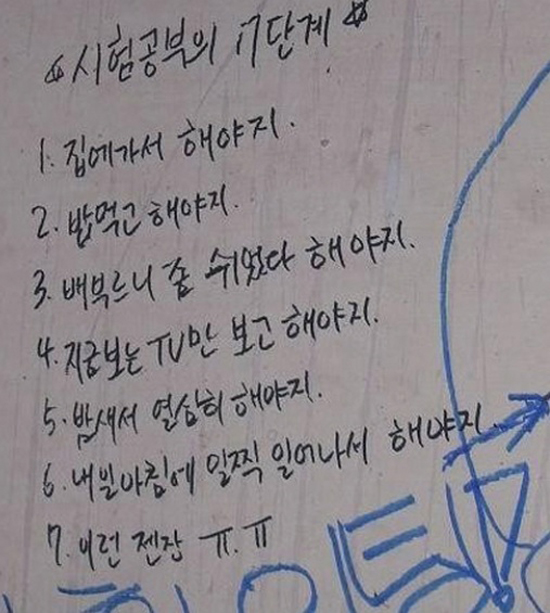 ☆시험공부의 17단계☆
1. 집에가서 해야지.
2. 밥먹고 해야지.
3. 배부르니 좀 쉬었다 해야지.
4. 지금보는 TV만 보고 해야지.
5. 밤새서 열심히 해야지.
6. 내일아침에 일찍 일어나서 해야지.
7. 이런 젠장 ㅠ.ㅠ